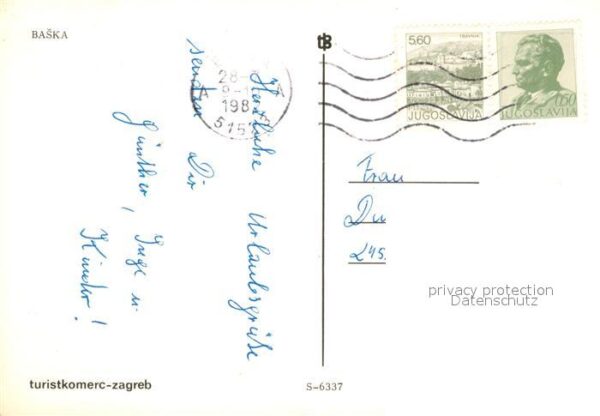 BAŠKA
Herzliche Urlaubsgrüße
senden Dir
Günther, Inge u.
Kinder!
TRAVNIK
5,60
JUGOSLAVIJA
0,60
JUGOSLAVIJA
28-
198
515
Frau
privacy protection
Datenschutz
turistkomerc-zagreb
S-6337